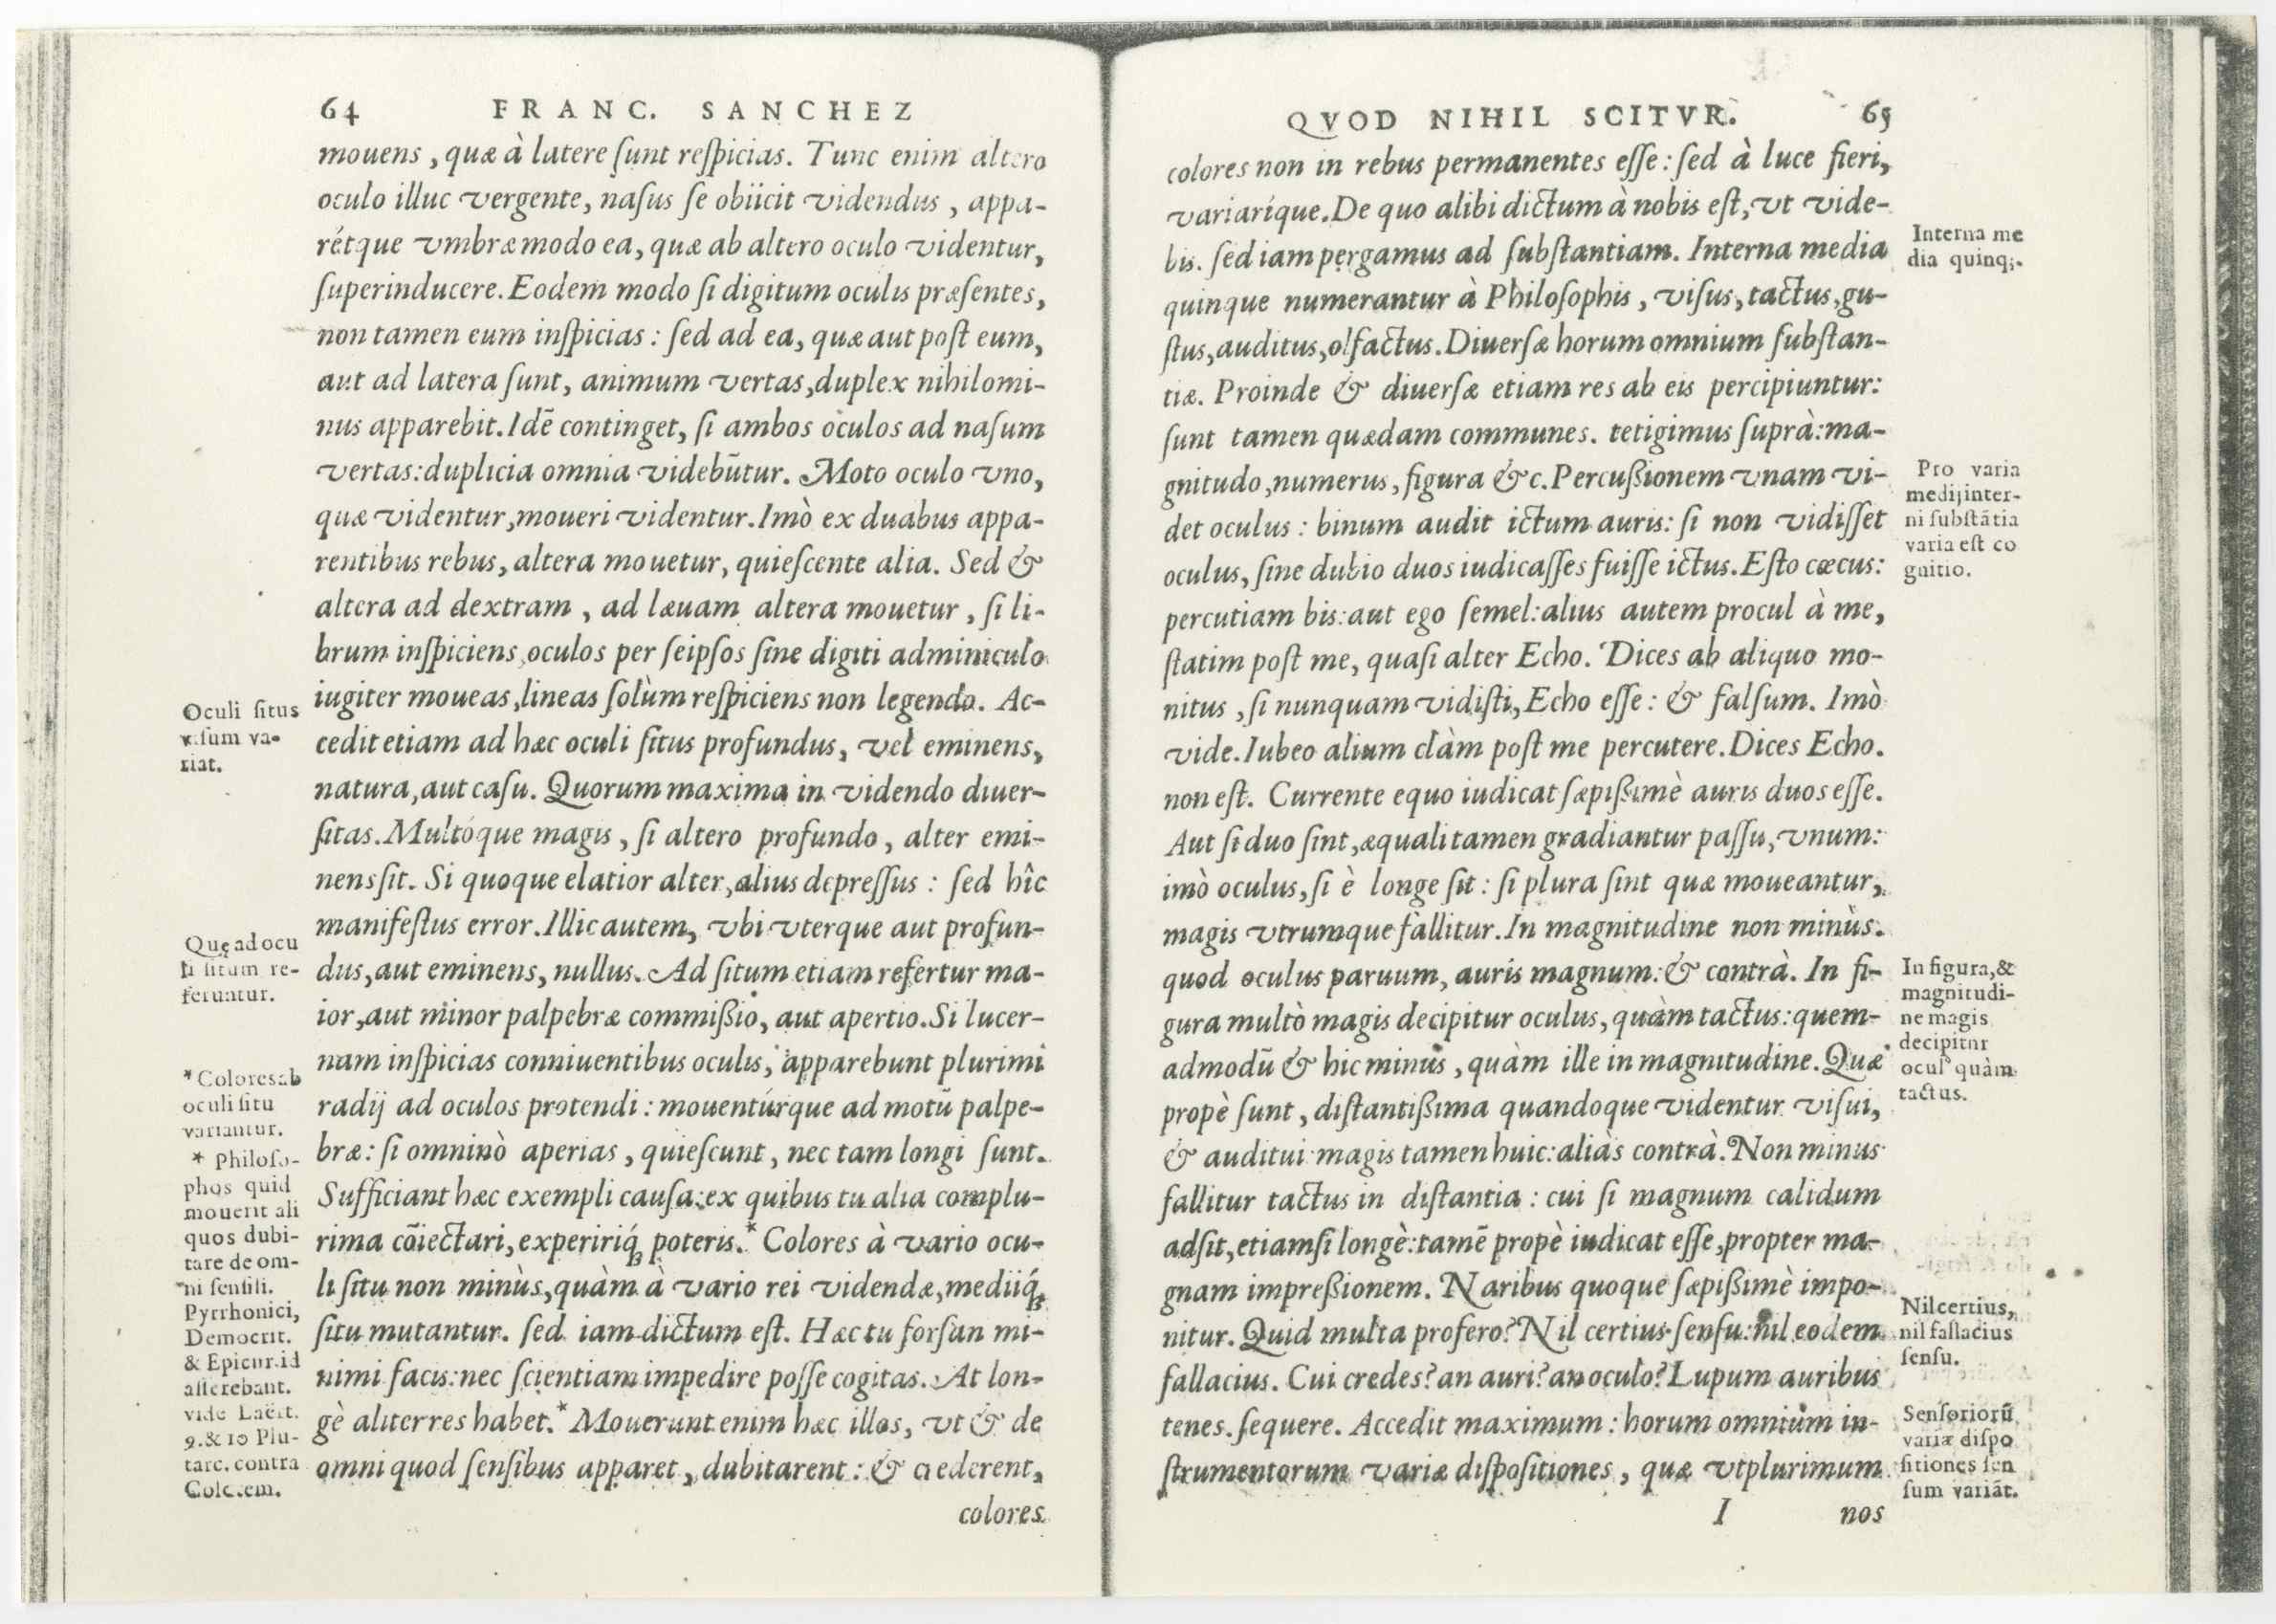 64 FRANC. SANCHEZ
mouens, quæ à latere ſunt reſpicias. Tunc enim altero
oculo illuc vergente, naſus ſe obiicit videndus, appa-
rétque vmbræ modo ea, quæ ab altero oculo videntur,
ſuperinducere. Eodem modo ſi digitum oculis præſentes,
non tamen eum inſpicias: ſed ad ea, quæ aut poſt eum,
aut ad latera ſunt, animum vertas, duplex nihilomi-
nus apparebit. Idē continget, ſi ambos oculos ad naſum
vertas: duplicia omnia videbūtur. Moto oculo vno,
quæ videntur, moueri videntur. Imò ex duabus appa-
rentibus rebus, altera mouetur, quieſcente alia. Sed &
altera ad dextram, ad læuam altera mouetur, ſi li-
brum inſpiciens, oculos per ſeipſos ſine digiti adminiculo
iugiter moueas, lineas ſolùm reſpiciens non legendo. Ac-
cedit etiam ad hæc oculi ſitus profundus, vel eminens,
natura, aut caſu. Quorum maxima in videndo diuer-
ſitas. Multóque magis, ſi altero profundo, alter emi-
nens ſit. Si quoque elatior alter, alius depreſſus: ſed hîc
manifeſtus error. Illic autem, vbi vterque aut profun-
dus, aut eminens, nullus. Ad ſitum etiam refertur ma-
ior, aut minor palpebræ commißio, aut apertio. Si lucer-
nam inſpicias conniuentibus oculis, apparebunt plurimi
radij ad oculos protendi: mouentúrque ad motū palpe-
bræ: ſi omninò aperias, quieſcunt, nec tam longi ſunt.
Sufficiant hæc exempli cauſa: ex quibus tu alia complu-
rima cōiectari, expeririq́; poteris.* Colores à vario ocu-
li ſitu non minùs, quàm à vario rei videndæ, mediiq́;
ſitu mutantur. ſed iam dictum eſt. Hæc tu forſan mi-
nimi facis: nec ſcientiam impedire poſſe cogitas. At lon-
gè aliter res habet.* Mouerunt enim hæc illos, vt & de
omni quod ſenſibus apparet, dubitarent: & crederent,
colores
Oculi ſitus
viſum va-
riat.
Quę ad ocu
li ſitum re-
feruntur.
* Colores ab
oculi ſitu
variantur.
* Philoſo-
phos quid
mouerit ali
quos dubi-
tare de om-
ni ſenſili.
Pyrrhonici,
Democrit.
& Epicur. id
aſſerebant.
vide Laërt.
9. & 10 Plu-
tarc. contra
QVOD NIHIL SCITVR. 65
colores non in rebus permanentes eſſe: ſed à luce fieri,
variaríque. De quo alibi dictum à nobis eſt, vt vide-
bis. ſed iam pergamus ad ſubſtantiam. Interna media
quinque numerantur à Philoſophis, viſus, tactus, gu-
ſtus, auditus, olfactus. Diuerſæ horum omnium ſubſtan-
tiæ. Proinde & diuerſæ etiam res ab eis percipiuntur:
ſunt tamen quædam communes. tetigimus ſuprà: ma-
gnitudo, numerus, figura &c. Percußionem vnam vi-
det oculus: binum audit ictum auris: ſi non vidiſſet
oculus, ſine dubio duos iudicaſſes fuiſſe ictus. Eſto cæcus:
percutiam bis: aut ego ſemel: alius autem procul à me,
ſtatim poſt me, quaſi alter Echo. Dices ab aliquo mo-
nitus, ſi nunquam vidiſti, Echo eſſe: & falſum. Imò
vide. Iubeo alium clàm poſt me percutere. Dices Echo.
non eſt. Currente equo iudicat ſæpißimè auris duos eſſe.
Aut ſi duo ſint, æquali tamen gradiantur paſſu, vnum:
imò oculus, ſi è longe ſit: ſi plura ſint quæ moueantur,
magis vtrumque fallitur. In magnitudine non minùs.
quod oculus paruum, auris magnum: & contrà. In fi-
gura multò magis decipitur oculus, quàm tactus: quem-
admodū & hic minus, quàm ille in magnitudine. Quæ
propè ſunt, diſtantißima quandoque videntur viſui,
& auditui: magis tamen huic: aliàs contrà. Non minus
fallitur tactus in diſtantia: cui ſi magnum calidum
adſit, etiamſi longè: tamē propè iudicat eſſe, propter ma-
gnam impreßionem. Naribus quoque ſæpißimè impo-
nitur. Quid multa profero? Nil certius ſenſu: nil eodem
fallacius. Cui credes? an auri? an oculo? Lupum auribus
tenes. ſequere. Accedit maximum: horum omnium in-
ſtrumentorum variæ diſpoſitiones, quæ vtplurimum
I nos
Interna me
dia quinq;.
Pro varia
medij inter-
ni ſubſtātia
varia eſt co
gnitio.
In figura, &
magnitudi-
ne magis
decipitur
ocul' quàm
tactus.
Nil certius,
nil fallacius
ſenſu.
Senſoriorū
variæ diſpo
ſitiones ſen
ſum variāt.